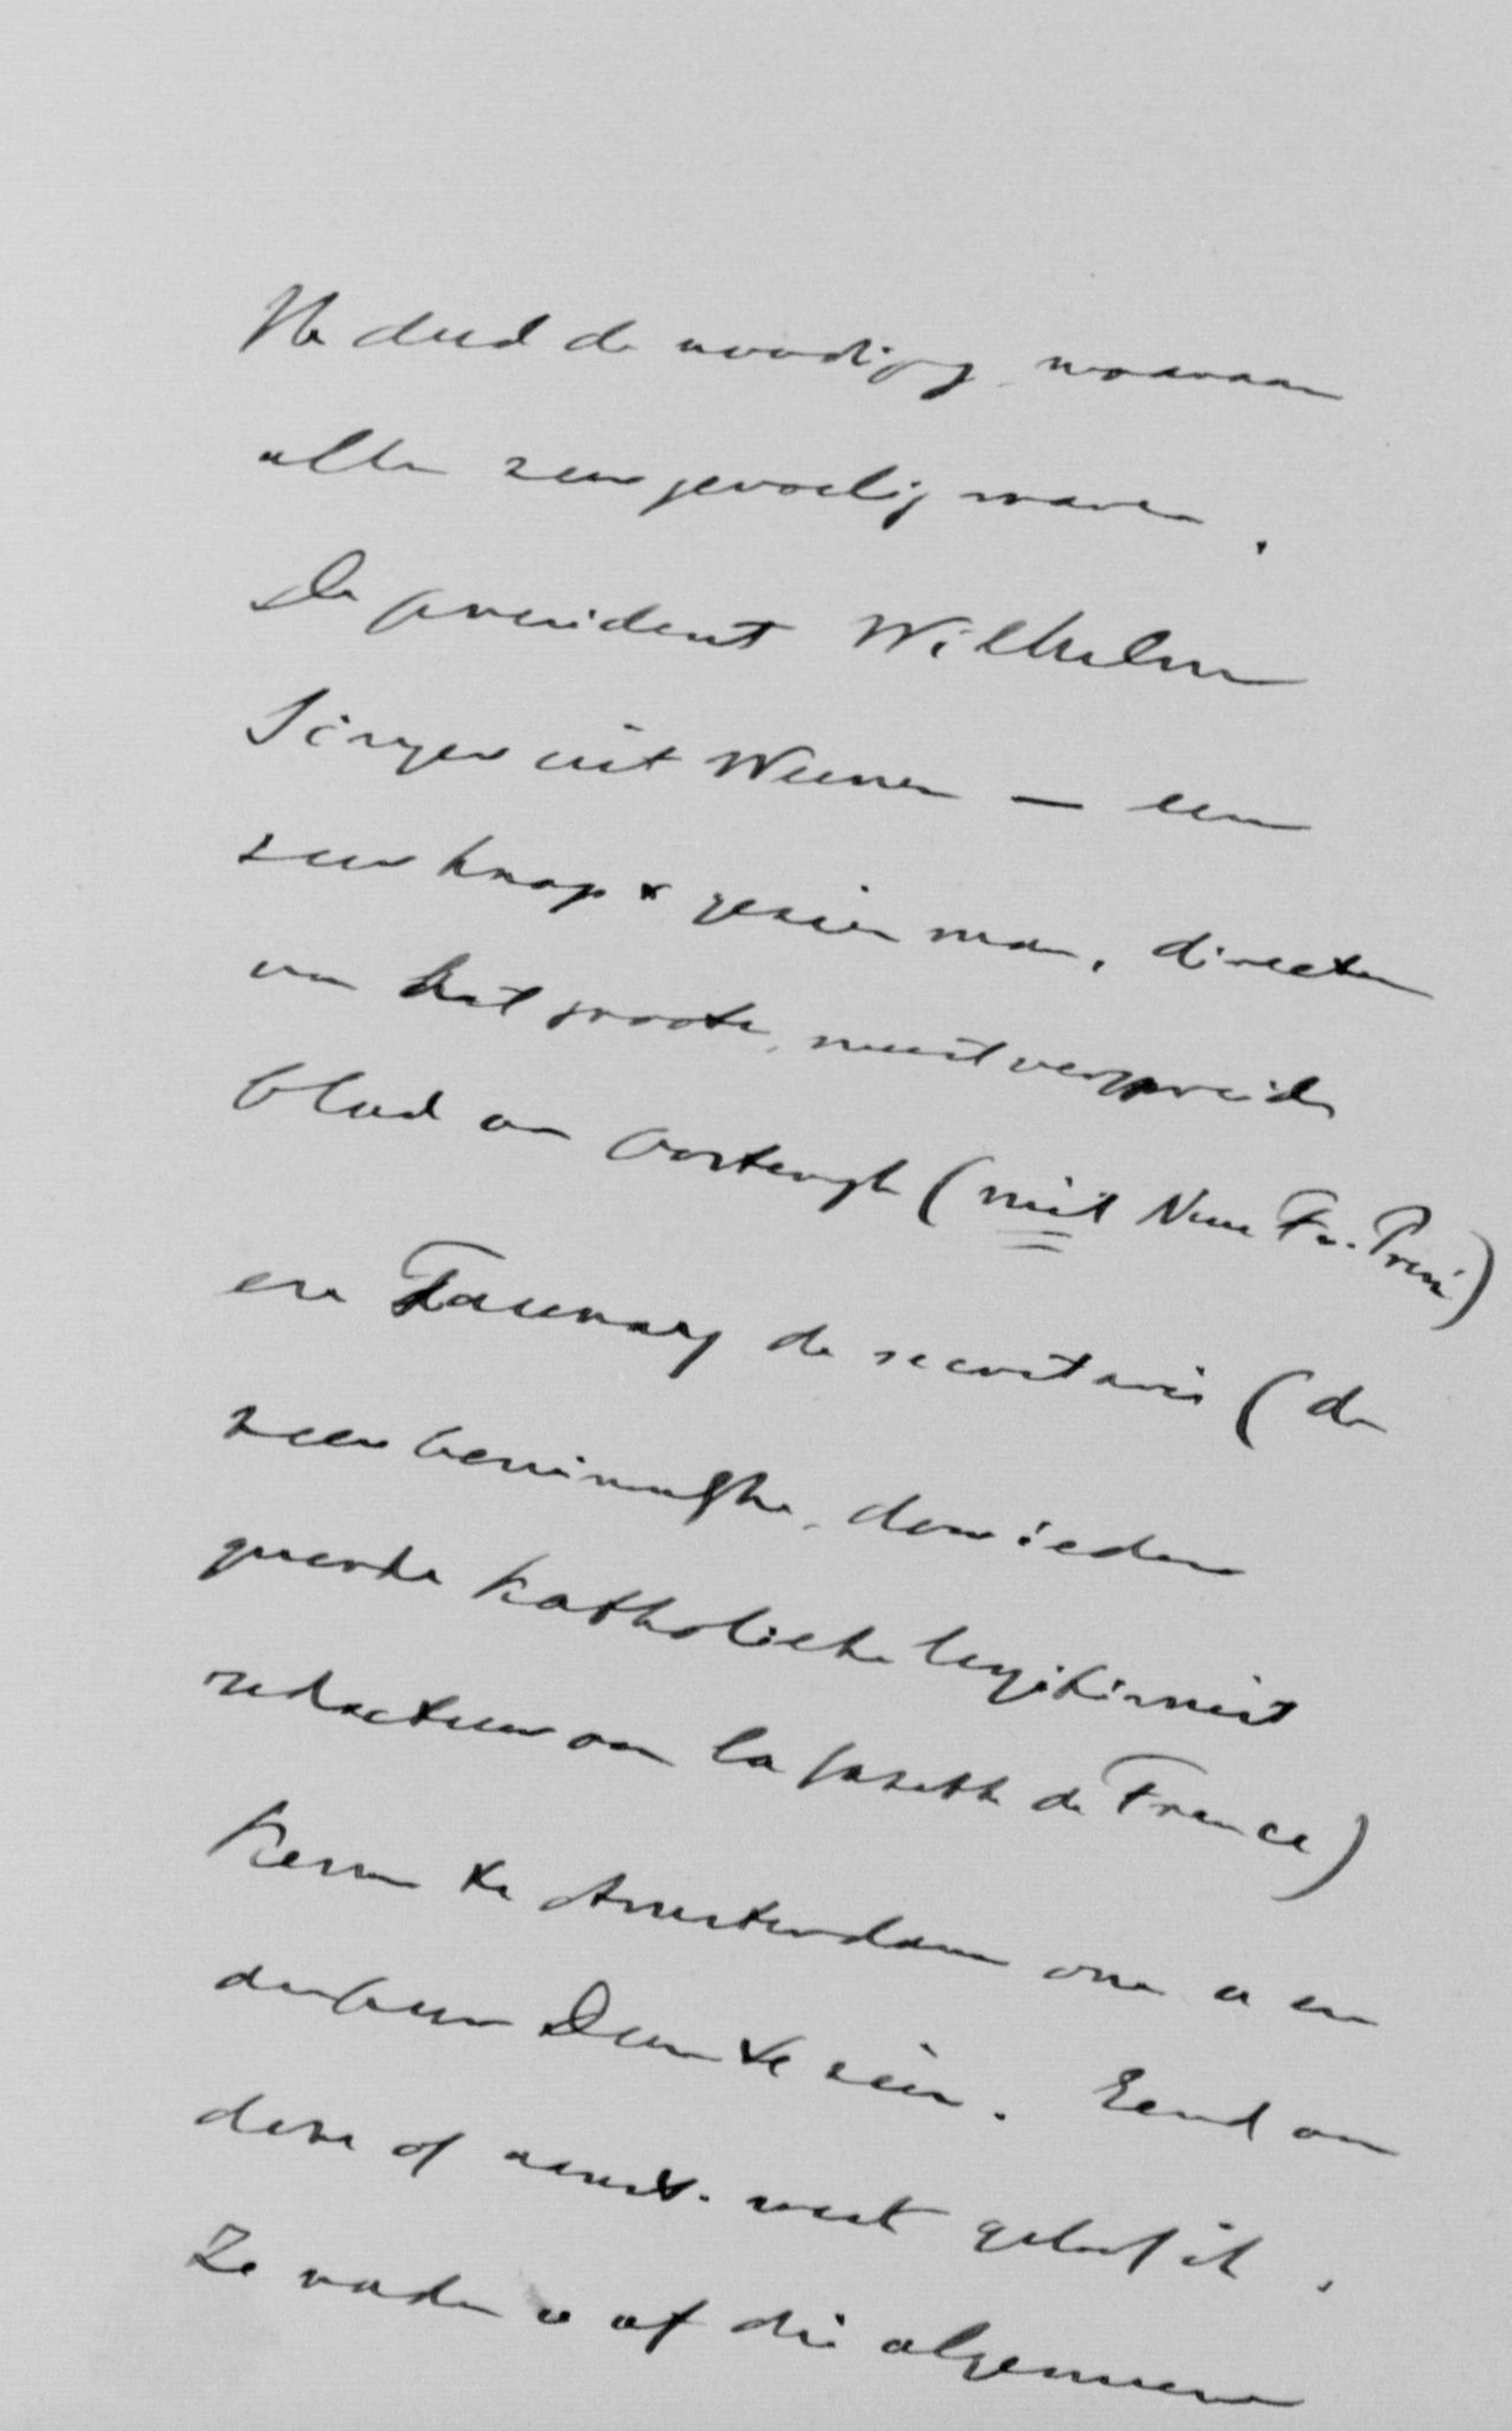 Ik deed de noodiging waaraan
allen zeer gevoelig waren.
De president Wilhelm
Singer uit Weenen — een
zeer knap & gezien man, directeur
van het groote, meest verspreide
blad van Oostenrijk (niet Neue Fr. Presse)
en Taunay de secretaris (de
zeer beminnelijke, door ieder
geëerde Katholieke legitimist
redacteur van la Gazette de France)
Komen te Amsterdam om u en
den heer Deen te zien. Eind van
deze of aanst. week geloof ik.
Ze raden u af die algemeene